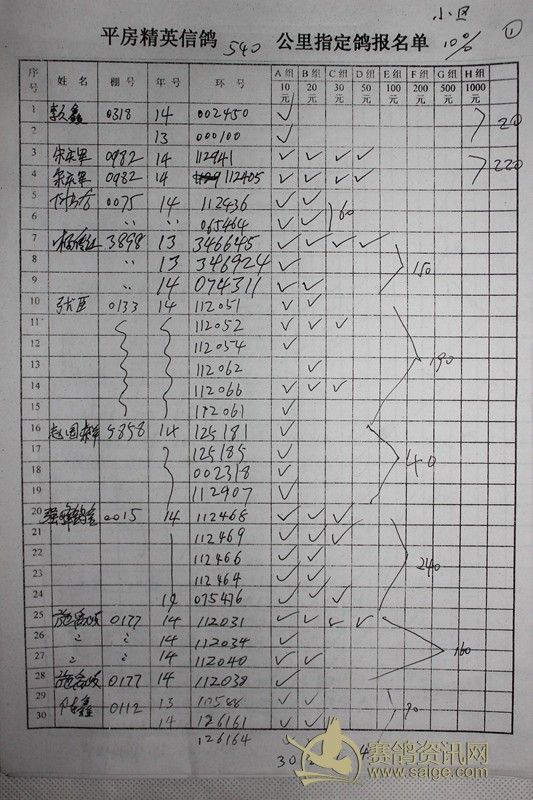 小区 ①
平房精英信鸽 540 公里指定鸽报名单 10%
序号 姓名 棚号 年号 环号 A组10元 B组20元 C组30元 D组50元 E组100元 F组200元 G组500元 H组1000元
1 0318 14 002450 ✓
2 13 000100 ✓ 20
3 0982 14 112941 ✓ ✓ ✓ ✓
4 0982 14 112405 ✓ ✓ ✓ ✓ 220
5 0075 14 112436 ✓ ✓
6 〃 〃 065464 ✓ ✓ 60
7 3898 13 346645 ✓ ✓ ✓ ✓
8 〃 13 346924 ✓
9 〃 14 074311 ✓ ✓ 150
10 0133 14 112051 ✓ ✓
11 112052 ✓ ✓ ✓
12 112054 ✓
13 112062 ✓ 190
14 112066 ✓ ✓ ✓
15 112061 ✓
16 5858 14 125181 ✓
17 125185 ✓
18 002318 ✓ 40
19 112907 ✓
20 0015 14 112468 ✓ ✓ ✓
21 112469 ✓ ✓ ✓
22 112466 ✓ ✓
23 112464 ✓ ✓ 240
24 14 075476 ✓ ✓ ✓
25 0177 14 112031 ✓ ✓ ✓ ✓
26 〃 〃 14 112034 ✓
27 〃 〃 14 112040 ✓ ✓ 160
28 0177 14 112038 ✓
29 13 ✓ ✓
30 0112 14 126161 ✓ ✓ ✓ 90
126164 ✓
30 4
赛鸽资讯网
www.saige.com